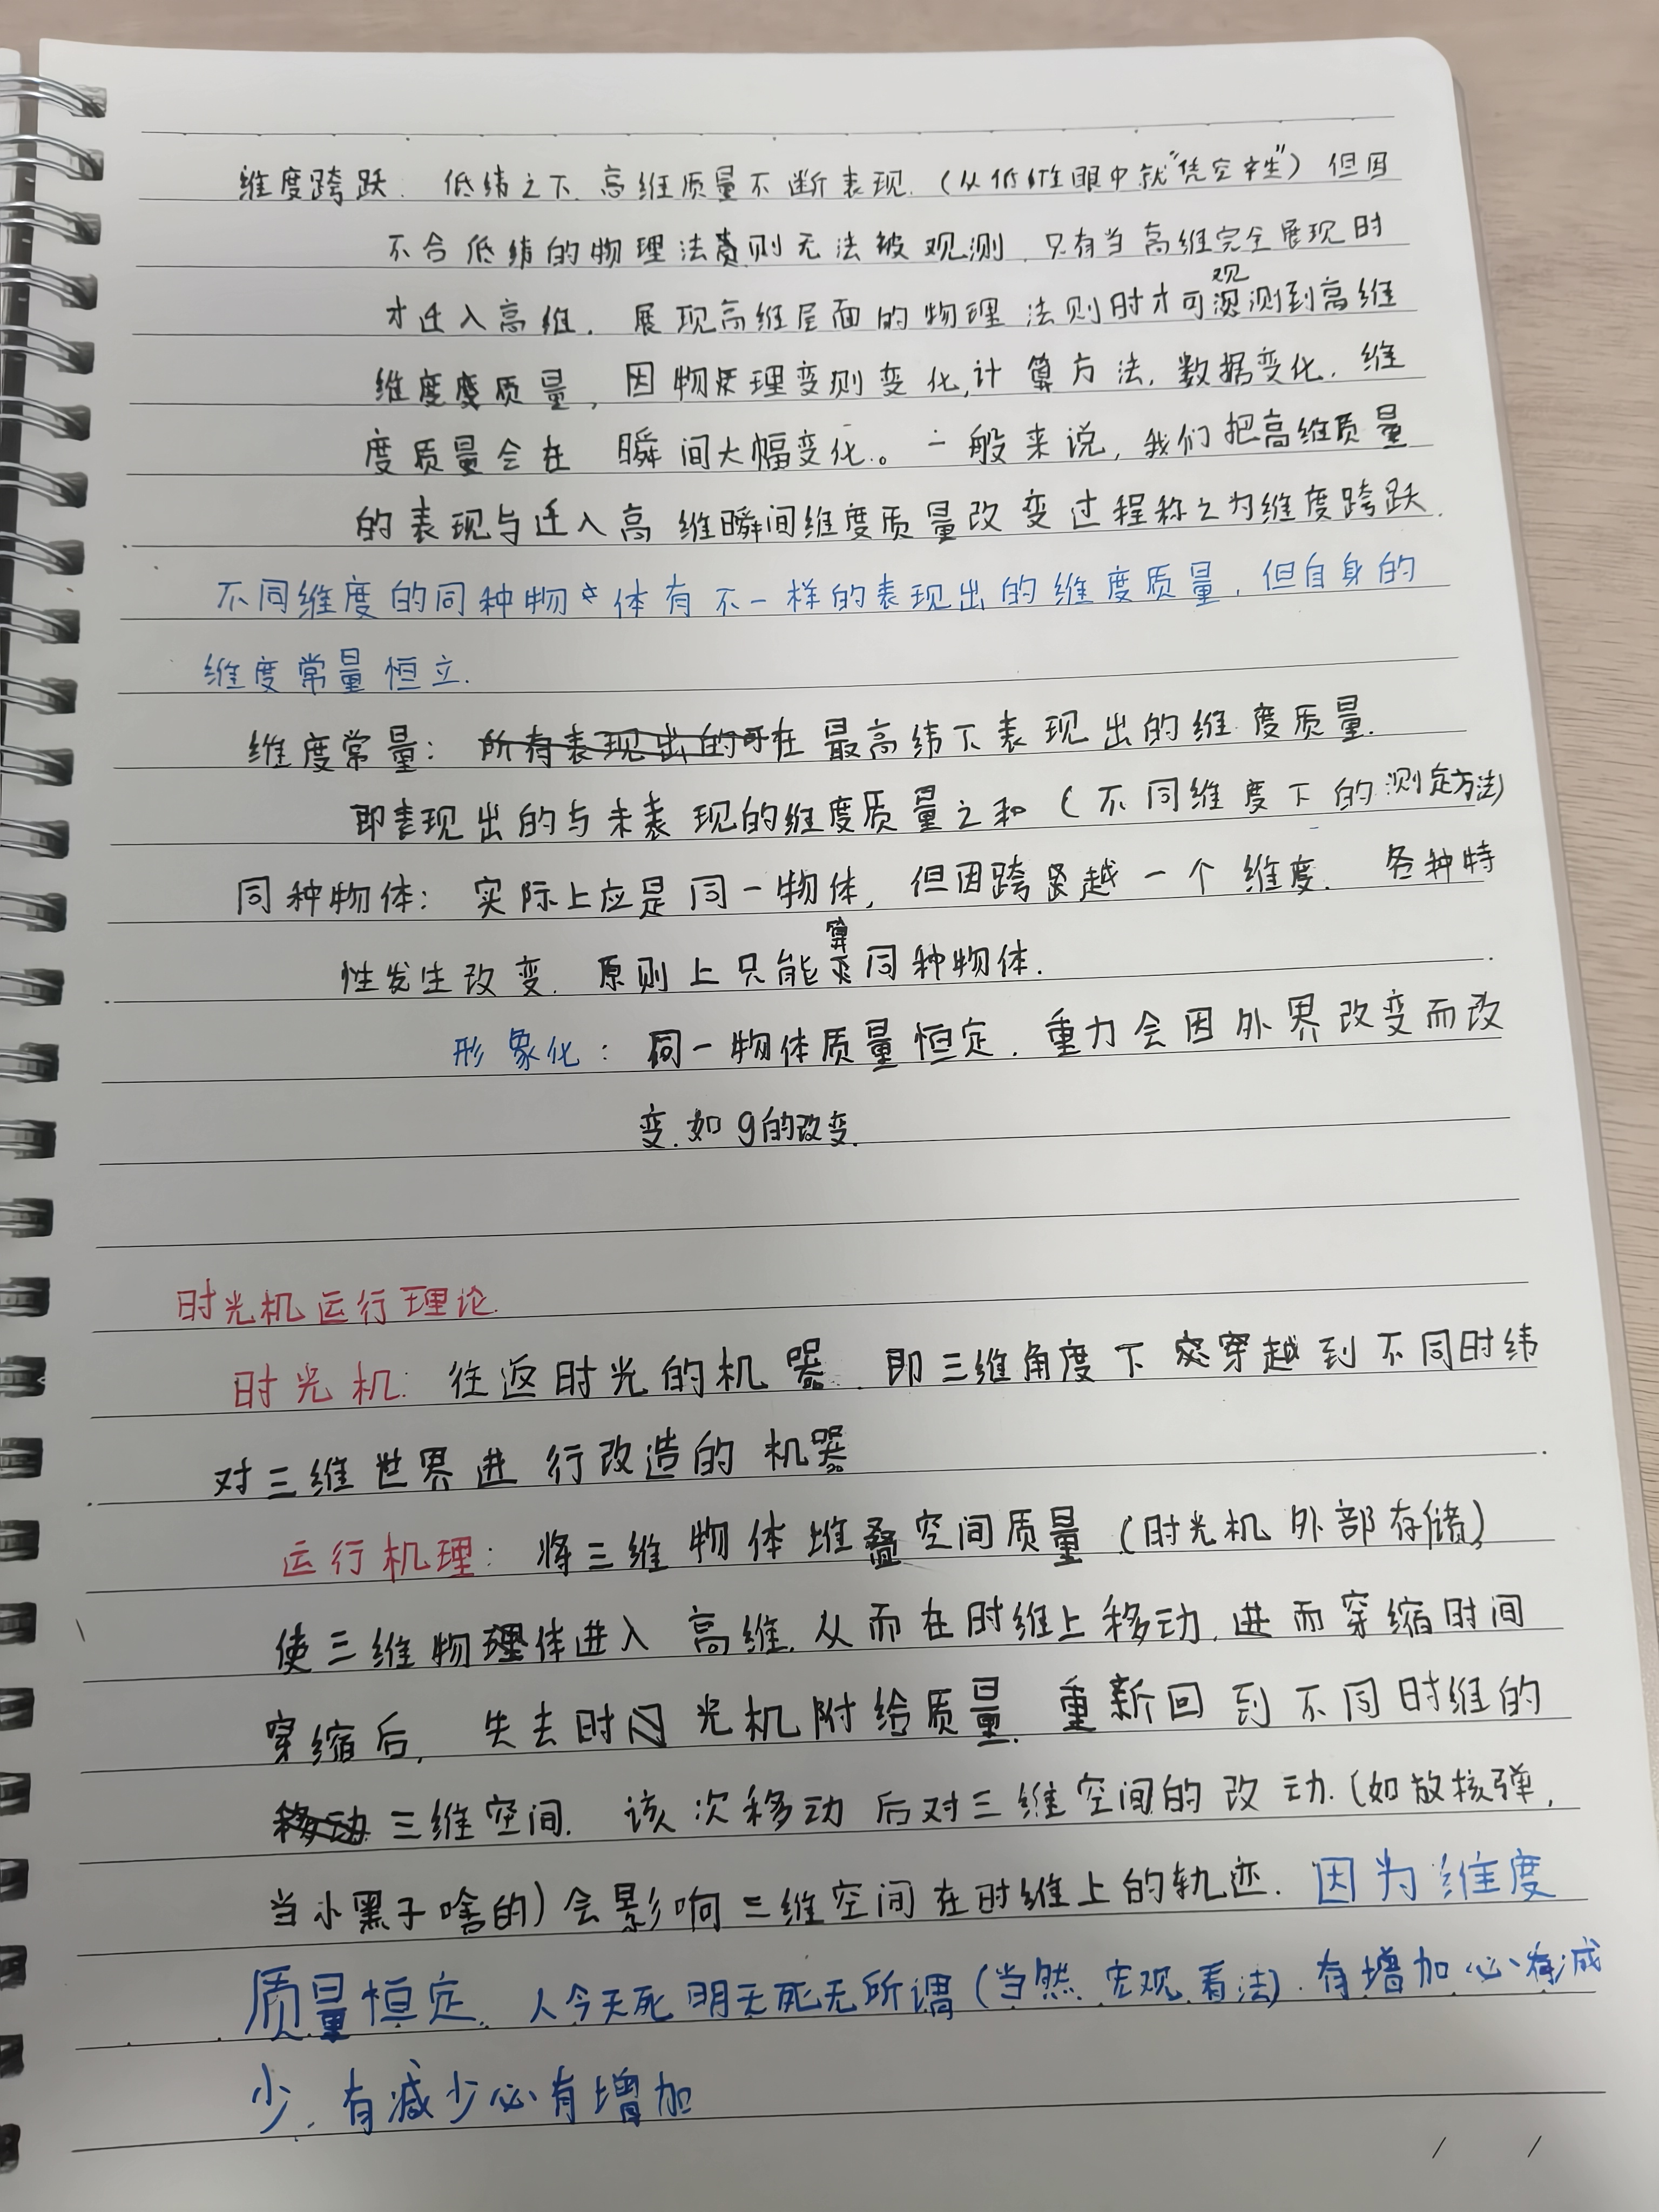 维度跨跃. 低纬之下. 高维质量不断表现.(从低维眼中就"凭空产生")但因
不合低纬的物理法则无法被观测. 只有当高维完全展现时
才迁入高维. 展现高维层面的物理法则时才可观测到高维
维度质量, 因物理变则变化,计算方法, 数据变化. 维
度质量会在瞬间大幅变化.。一般来说, 我们把高维质量
的表现与迁入高维瞬间维度质量改变过程称之为维度跨跃.
不同维度的同种物体有不一样的表现出的维度质量, 但自身的
维度常量恒立.
维度常量: 在最高纬下表现出的维度质量.
即表现出的与未表现的维度质量之和(不同维度下的测定方法)
同种物体: 实际上应是同一物体, 但因跨越一个维度. 各种特
性发生改变. 原则上只能算同种物体.
形象化: 同一物体质量恒定. 重力会因外界改变而改
变. 如g的改变.
时光机运行理论.
时光机: 往返时光的机器. 即三维角度下穿越到不同时纬
对三维世界进行改造的机器
运行机理: 将三维物体堆叠空间质量(时光机外部存储)
使三维物体进入高维. 从而在时维上移动. 进而穿缩时间
穿缩后, 失去时光机附给质量. 重新回到不同时维的
三维空间. 该次移动后对三维空间的改动.(如放核弹,
当小黑子啥的)会影响三维空间在时维上的轨迹. 因为维度
质量恒定. 人今天死明天死无所谓(当然. 宏观看法). 有增加必有减
少. 有减少必有增加